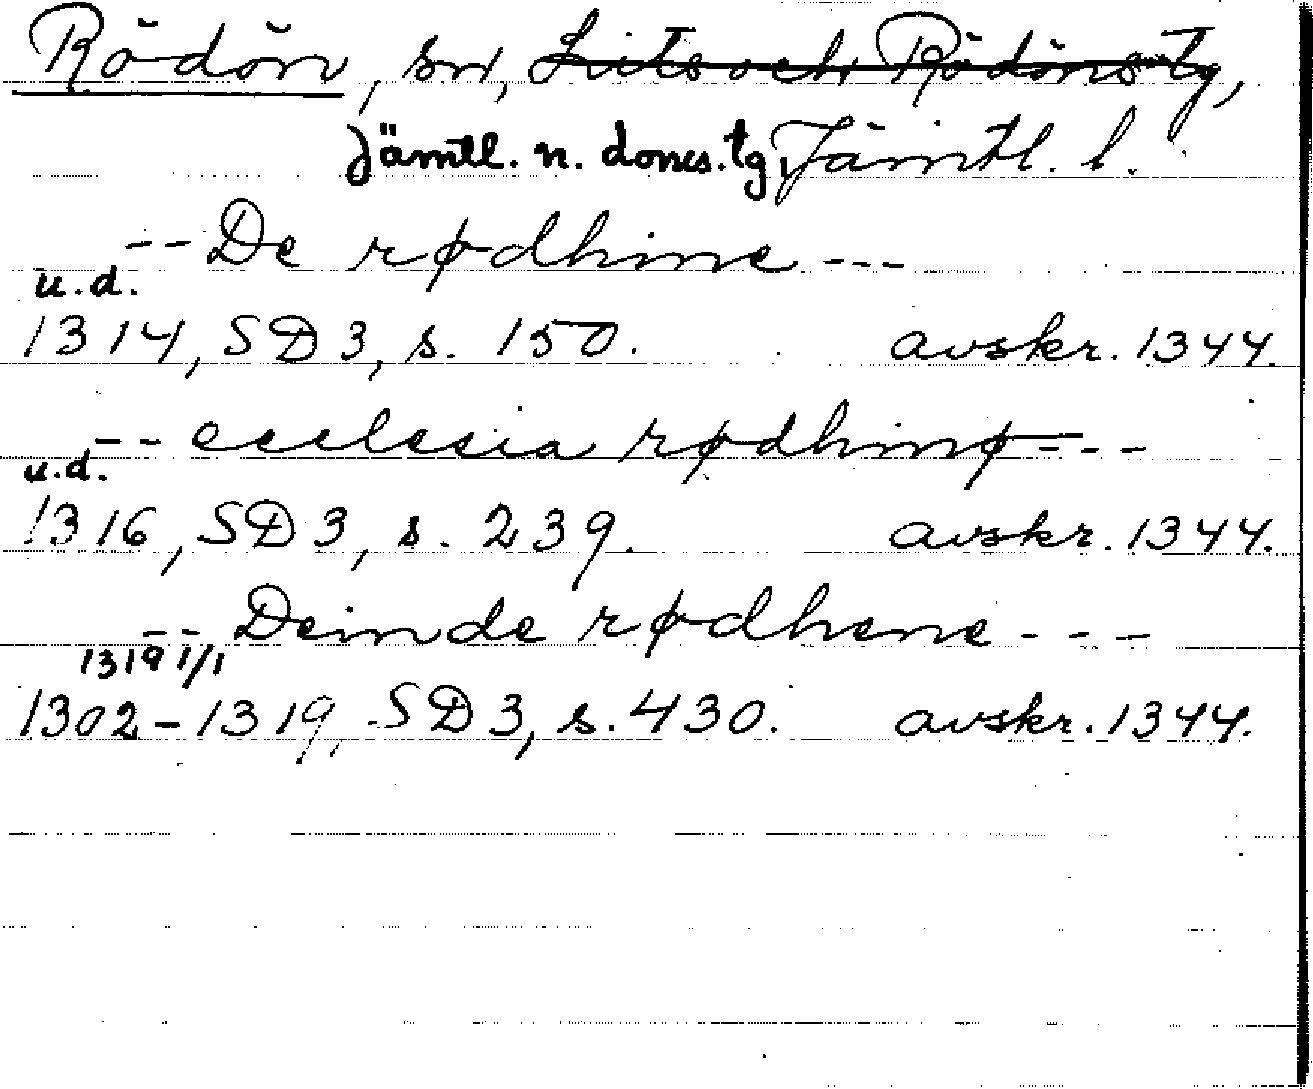 Rödön, sn, Lits och Rödöns tg,
Jämtl. n. doms. tg, Jämtl. l.
-- De rødhine ---
u.d.
1314, SD 3, s. 150. avskr. 1344.
-- ecclesia rødhinø ---
u.d.
1316, SD 3, s. 239. avskr. 1344.
-- Deinde rødhene ---
1319 1/1
1302-1319, SD 3, s. 430. avskr. 1344.